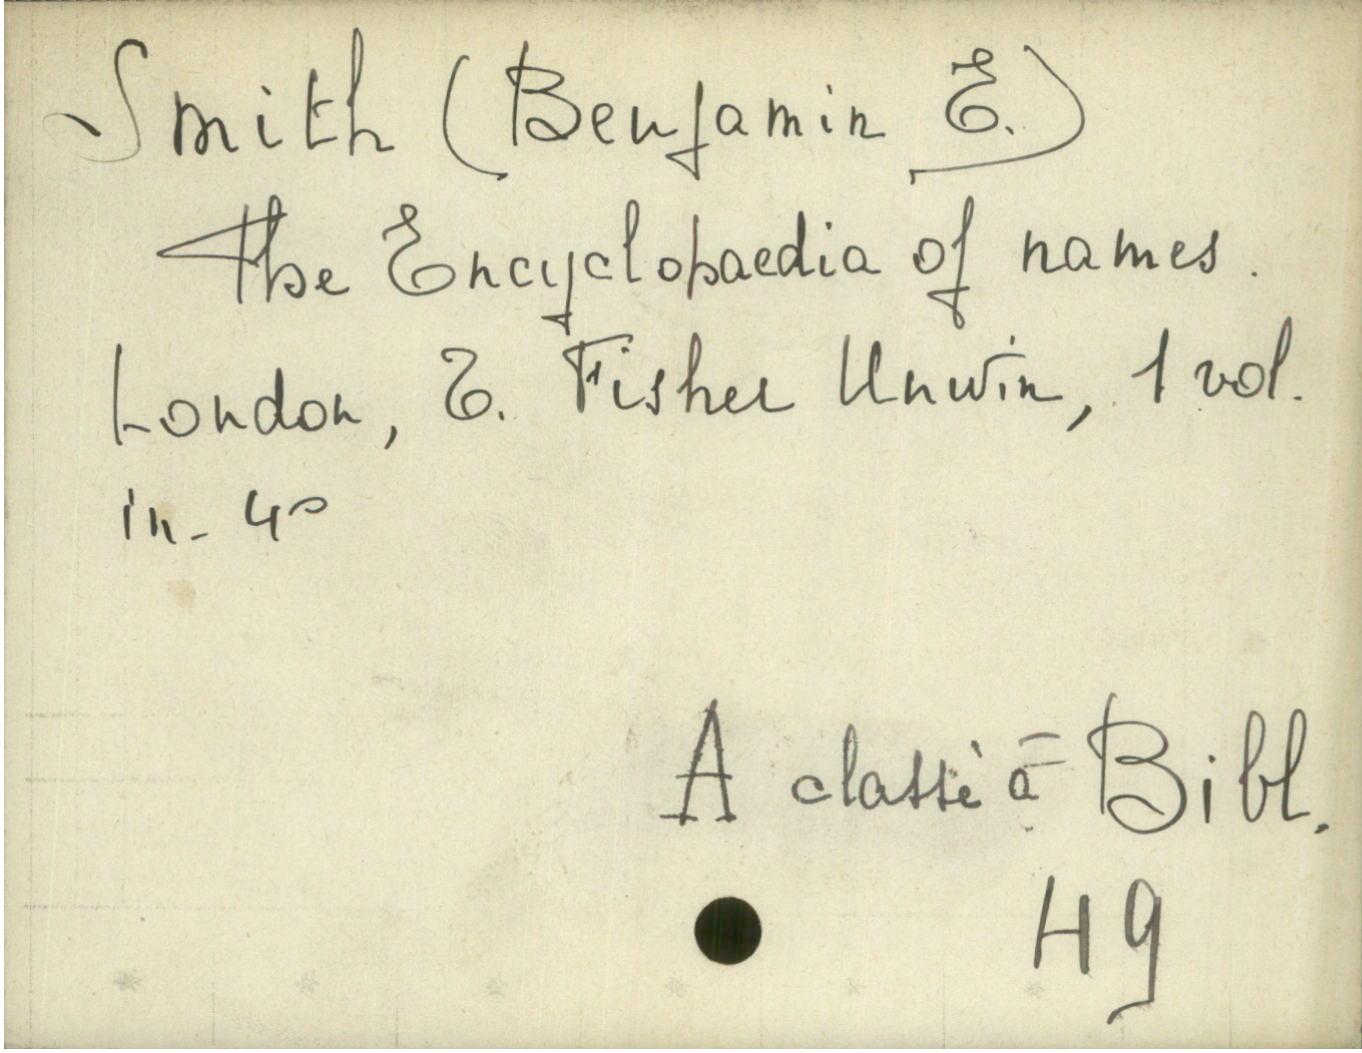 Smith (Benjamin E.)
The Encyclopaedia of names.
London, T. Fisher Unwin, 1 vol.
in-4°
A classé à Bibl.
H9